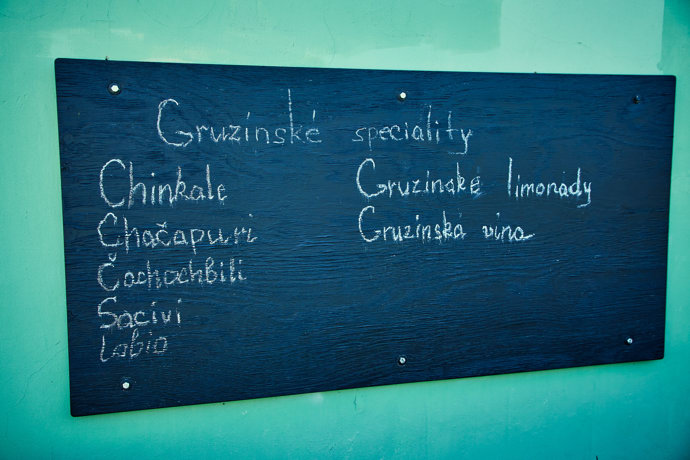 Gruzínské speciality
Chinkale
Chačapuri
Čachochbili
Sacivi
Lobio
Gruzínské limonády
Gruzínská vína